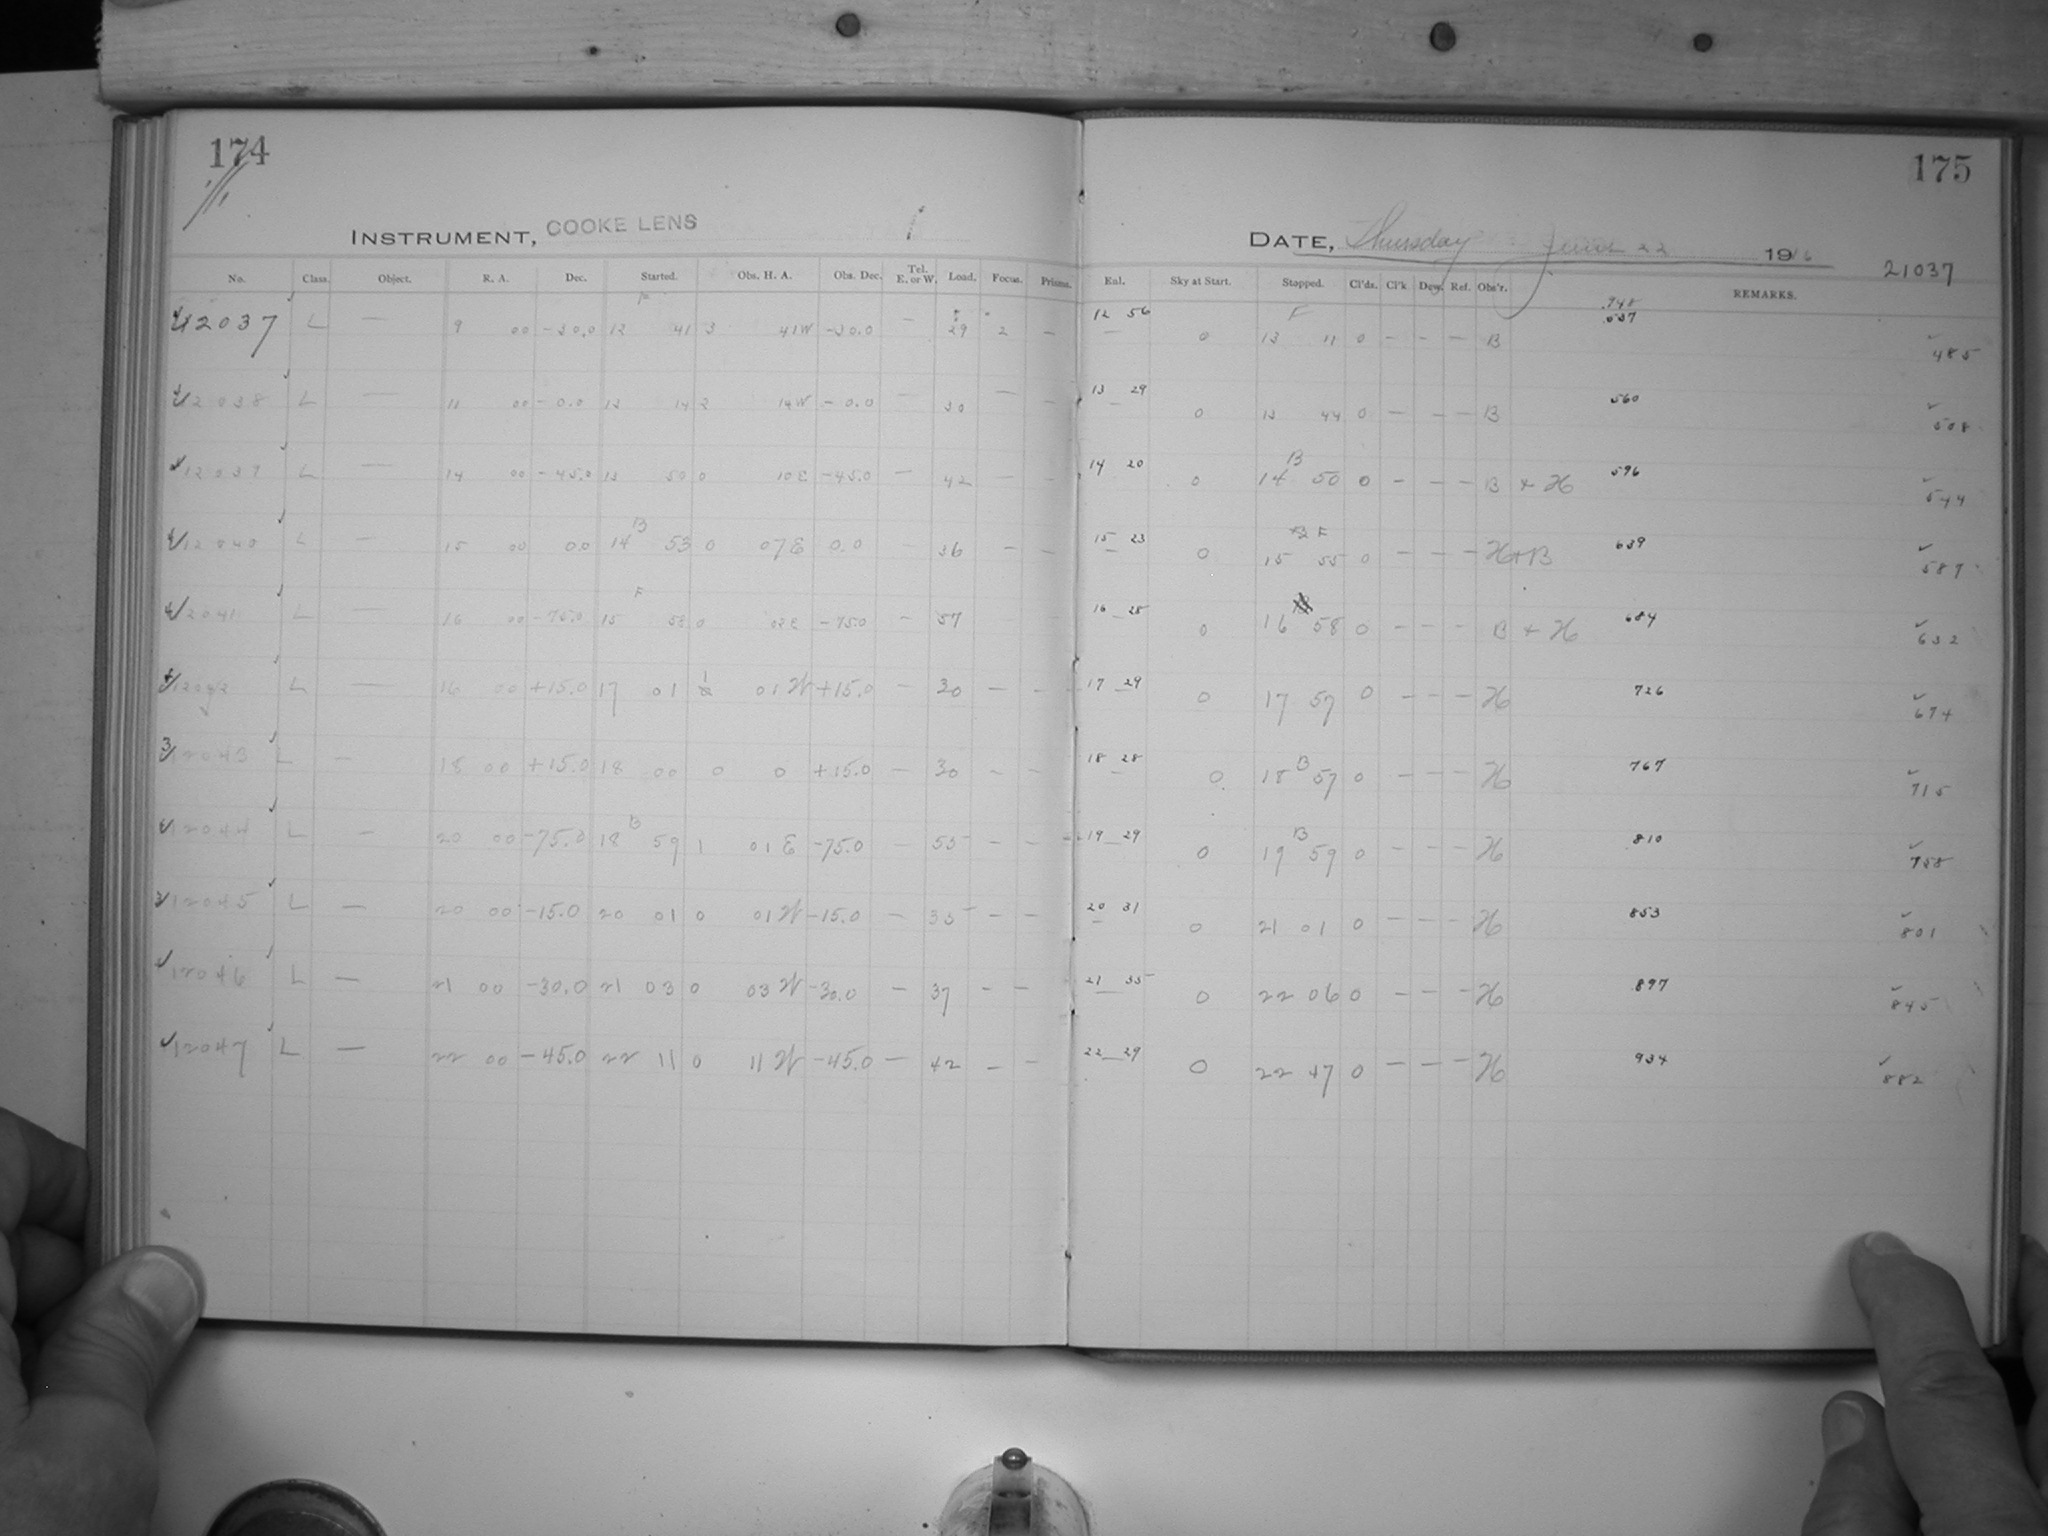 174
175
INSTRUMENT, COOKE LENS
DATE, Thursday June 22 1916
21037
No. Class. Object. R. A. Dec. Started. Obs. H. A. Obs. Dec. Tel. E. or W. Load. Focus. Prisms. Eal. Sky at Start. Stopped. Cl'ds. Cl'k Dew. Ref. Obs'r. REMARKS.
12037 L — 9 00 -30.0 12 41 3 41W -30.0 — 29 2 — 12 56 0 13 11 0 — — — B .537 485
12038 L — 11 00 -0.0 13 14 2 14W -0.0 — 30 — — 13 29 0 13 44 0 — — — B 560 508
12039 L — 14 00 -45.0 13 50 0 10E -45.0 — 42 — — 14 20 0 14 50 0 — — — B + H 596 544
12040 L — 15 00 0.0 14 53 0 07E 0.0 — 36 — — 15 23 0 15 55 0 — — — H+B 639 587
12041 L — 16 00 -75.0 15 58 0 02E -75.0 — 57 16 28 0 16 58 0 — — — B + H 684 632
12042 L — 16 00 +15.0 17 01 1 01W +15.0 — 30 — — 17 29 0 17 57 0 — — — H 726 674
12043 L — 18 00 +15.0 18 00 0 0 +15.0 — 30 — — 18 28 0 18 57 0 — — — H 767 715
12044 L — 20 00 -75.0 18 59 1 01E -75.0 — 55 — — 19 29 0 19 59 0 — — — H 810 758
12045 L — 20 00 -15.0 20 01 0 01W -15.0 — 35 — — 20 31 0 21 01 0 — — — H 853 801
12046 L — 21 00 -30.0 21 03 0 03W -30.0 — 37 — — 21 35 0 22 06 0 — — — H 897 845
12047 L — 22 00 -45.0 22 11 0 11W -45.0 — 42 — — 22 29 0 22 47 0 — — — H 934 882